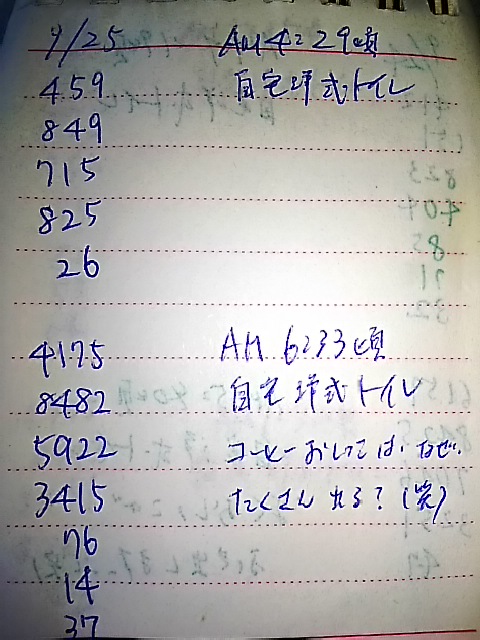 9/25 AM 4:29頃
459 自宅洋式トイレ
849
715
825
26
4175 AM 6:33頃
8482 自宅洋式トイレ
5922 コーヒーおしっこは、なぜ、
3415 たくさん出る?(笑)
76
14
37